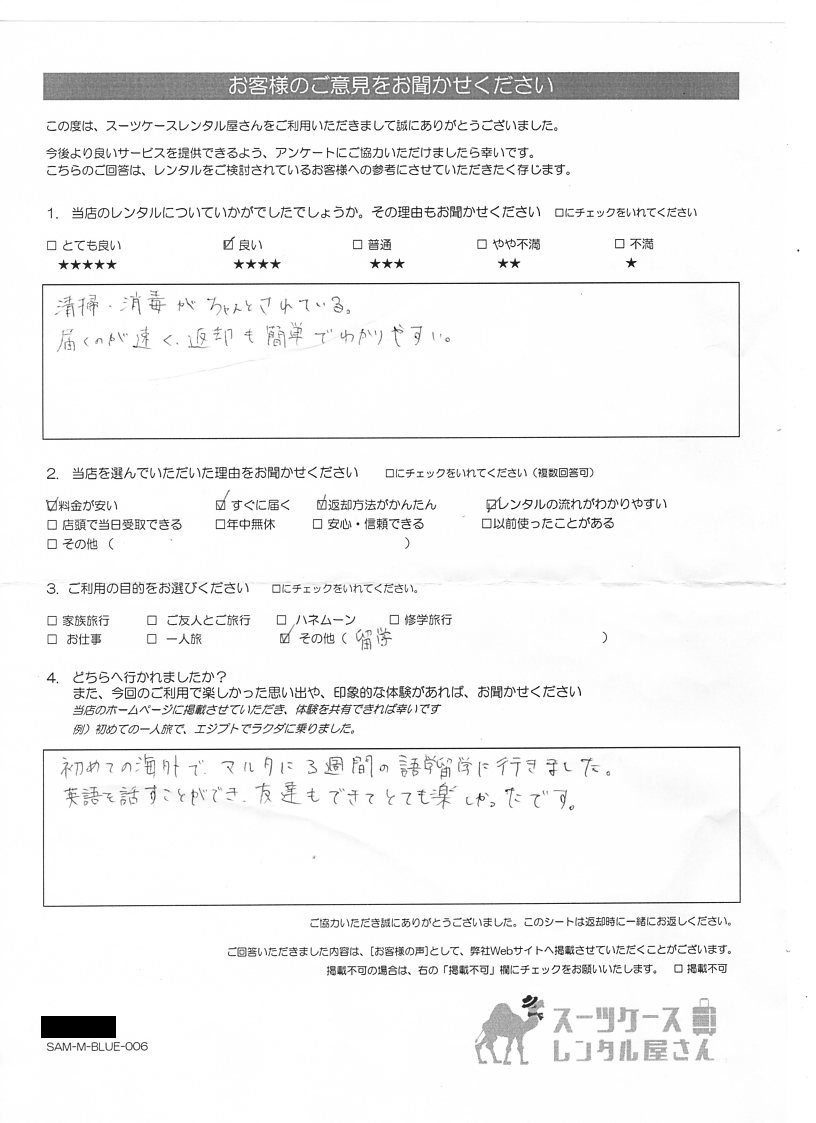 お客様のご意見をお聞かせください
この度は、スーツケースレンタル屋さんをご利用いただきまして誠にありがとうございました。
今後より良いサービスを提供できるよう、アンケートにご協力いただけましたら幸いです。
こちらのご回答は、レンタルをご検討されているお客様への参考にさせていただきたく存じます。
1. 当店のレンタルについていかがでしたでしょうか。その理由もお聞かせください □にチェックをいれてください
□ とても良い ☑ 良い □ 普通 □ やや不満 □ 不満
★★★★★ ★★★★ ★★★ ★★ ★
清掃・消毒がちゃんとされている。
届くのが速く、返却も簡単でわかりやすい。
2. 当店を選んでいただいた理由をお聞かせください □にチェックをいれてください（複数回答可）
☑料金が安い ☑ すぐに届く ☑返却方法がかんたん ☑レンタルの流れがわかりやすい
□ 店頭で当日受取できる □年中無休 □ 安心・信頼できる □以前使ったことがある
□ その他（ ）
3. ご利用の目的をお選びください □にチェックをいれてください。
□ 家族旅行 □ ご友人とご旅行 □ ハネムーン □ 修学旅行
□ お仕事 □ 一人旅 ☑ その他（ 留学 ）
4. どちらへ行かれましたか？
また、今回のご利用で楽しかった思い出や、印象的な体験があれば、お聞かせください
当店のホームページに掲載させていただき、体験を共有できれば幸いです
例）初めての一人旅で、エジプトでラクダに乗りました。
初めての海外で、マルタに3週間の語学留学に行きました。
英語を話すことができ、友達もできてとても楽しかったです。
ご協力いただき誠にありがとうございました。このシートは返却時に一緒にお返しください。
ご回答いただきました内容は、[お客様の声]として、弊社Webサイトへ掲載させていただくことがございます。
掲載不可の場合は、右の「掲載不可」欄にチェックをお願いいたします。 □ 掲載不可
SAM-M-BLUE-006
スーツケース
レンタル屋さん